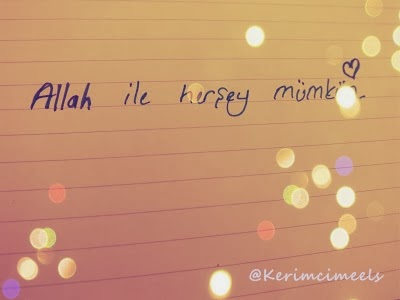 Allah ile herşey mümkün
@Kerimcimeels